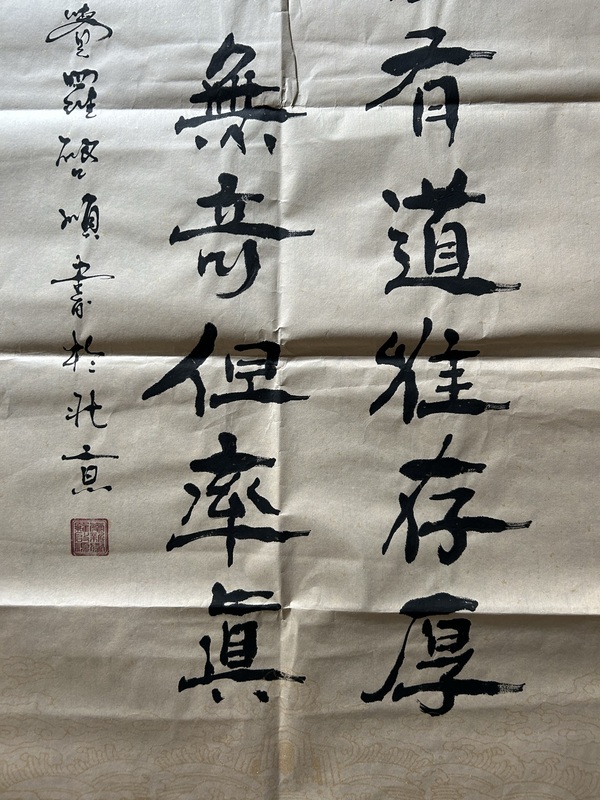 有道惟存厚
無奇但率眞
覺羅啓順書於北京